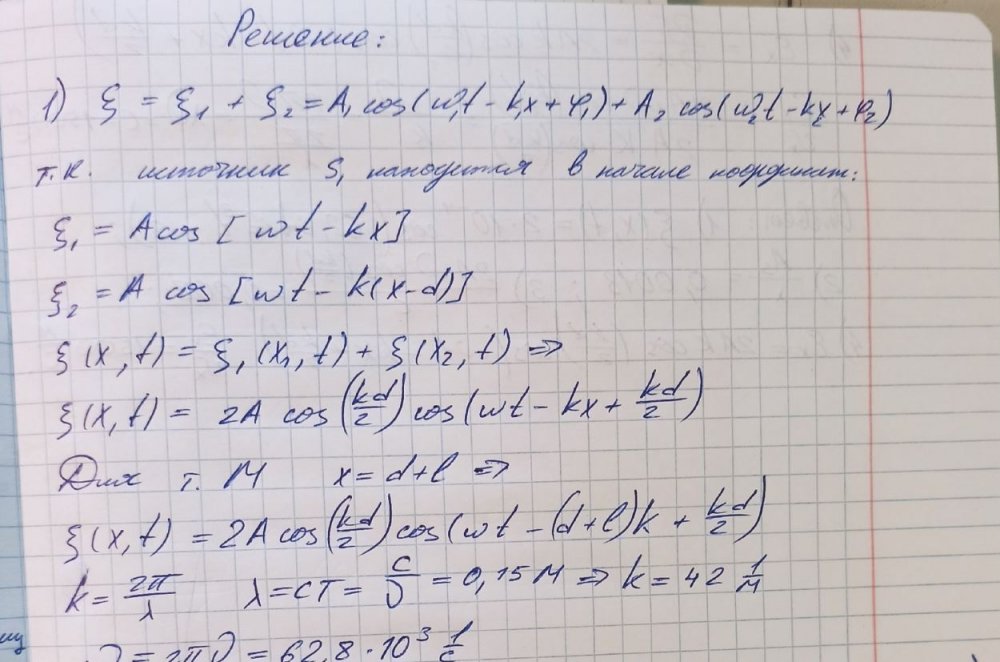 Решение:
1) ξ = ξ₁ + ξ₂ = A₁ cos(ω₁t - k₁x + φ₁) + A₂ cos(ω₂t - k₂x + φ₂)
т.к. источник S₁ находится в начале координат:
ξ₁ = A cos [ωt - kx]
ξ₂ = A cos [ωt - k(x-d)]
ξ(x,t) = ξ₁(x₁,t) + ξ(x₂,t) ⇒
ξ(x,t) = 2A cos(kd/2) cos(ωt - kx + kd/2)
Для т. M x = d+l ⇒
ξ(x,t) = 2A cos(kd/2) cos(ωt - (d+l)k + kd/2)
k = 2π/λ λ = cT = c/ν = 0,15 м ⇒ k = 42 1/м
ω = 2πν = 62,8 · 10³ 1/с